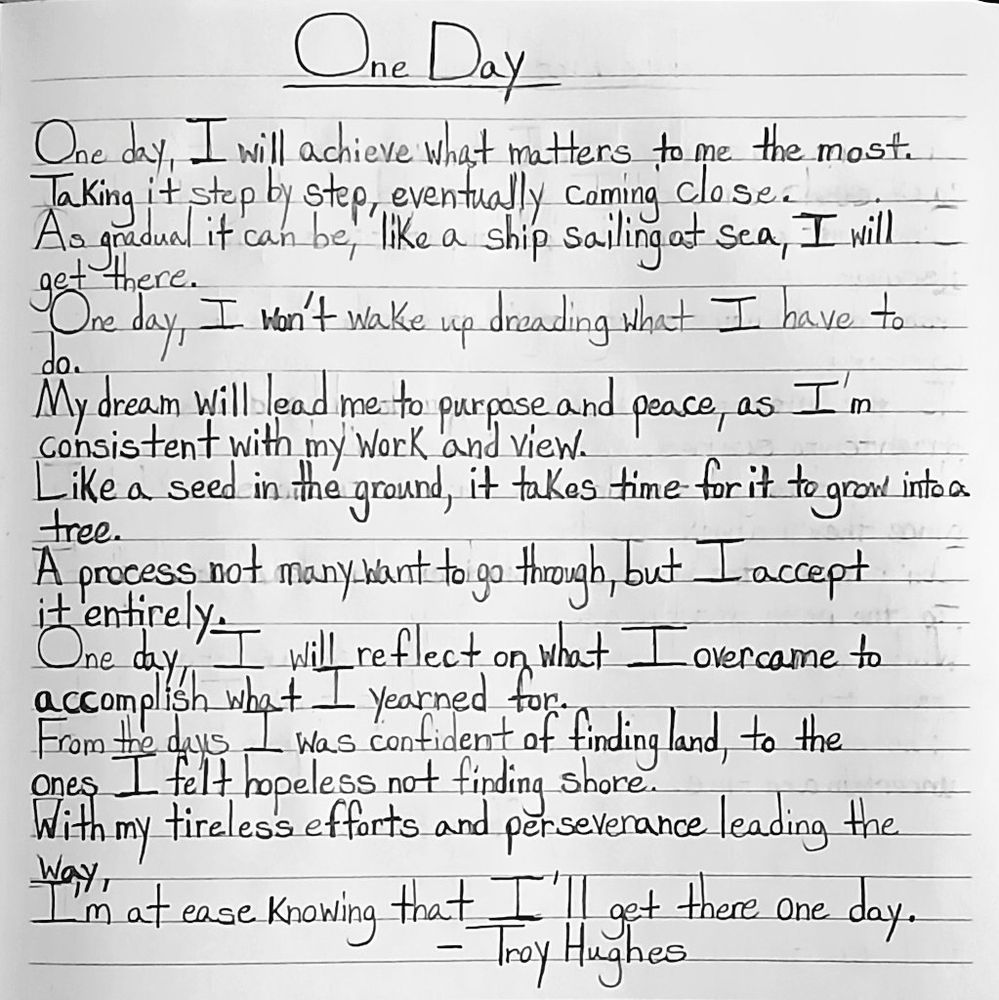 One Day
One day, I will achieve what matters to me the most.
Taking it step by step, eventually coming close.
As gradual it can be, like a ship sailing at sea, I will
get there.
One day, I won't wake up dreading what I have to
do.
My dream will lead me to purpose and peace, as I'm
consistent with my work and view.
Like a seed in the ground, it takes time for it to grow into a
tree.
A process not many want to go through, but I accept
it entirely.
One day, I will reflect on what I overcame to
accomplish what I yearned for.
From the days I was confident of finding land, to the
ones I felt hopeless not finding shore.
With my tireless efforts and perseverance leading the
way,
I'm at ease knowing that I'll get there one day.
- Troy Hughes